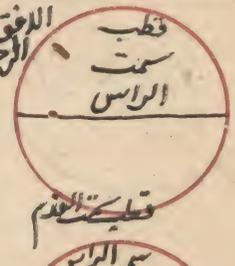 الافق
قطب
سمت
الراس
قطب سمت القدم
سمت الراس